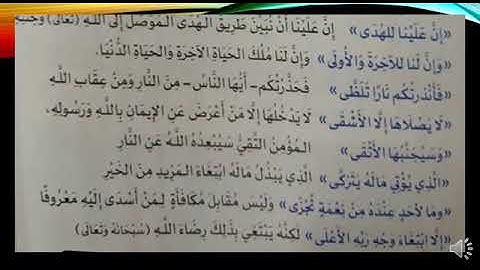 «إِنَّ عَلَيْنَا لَلْهُدَى» إِنَّ عَلَيْنَا أَنْ نُبَيِّنَ طَرِيقَ الْهُدَى الْمُوَصِّلَ إِلَى اللَّهِ (تَعَالَى)
«وَإِنَّ لَنَا لَلْآخِرَةَ وَالْأُولَى» وَإِنَّ لَنَا مُلْكَ الْحَيَاةِ الْآخِرَةِ وَالْحَيَاةِ الدُّنْيَا.
«فَأَنْذَرْتُكُمْ نَارًا تَلَظَّى» فَحَذَّرْتُكُمْ- أَيُّهَا النَّاسُ- مِنَ النَّارِ وَمِنْ عِقَابِ اللَّهِ
«لَا يَصْلَاهَا إِلَّا الْأَشْقَى» لَا يَدْخُلُهَا إِلَّا مَنْ أَعْرَضَ عَنِ الْإِيمَانِ بِاللَّهِ وَرَسُولِهِ.
«وَسَيُجَنَّبُهَا الْأَتْقَى» الْمُؤْمِنُ التَّقِيُّ سَيُبْعِدُهُ اللَّهُ عَنِ النَّارِ
«الَّذِي يُؤْتِي مَالَهُ يَتَزَكَّى» الَّذِي يَبْذُلُ مَالَهُ ابْتِغَاءَ الْمَزِيدِ مِنَ الْخَيْرِ
«وَمَا لِأَحَدٍ عِنْدَهُ مِنْ نِعْمَةٍ تُجْزَى» وَلَيْسَ مُقَابِلَ مُكَافَأَةٍ لِمَنْ أَسْدَى إِلَيْهِ مَعْرُوفًا
«إِلَّا ابْتِغَاءَ وَجْهِ رَبِّهِ الْأَعْلَى» لَكِنَّهُ يَبْتَغِي بِذَلِكَ رِضَاءَ اللَّهِ (سُبْحَانَهُ وَتَعَالَى)